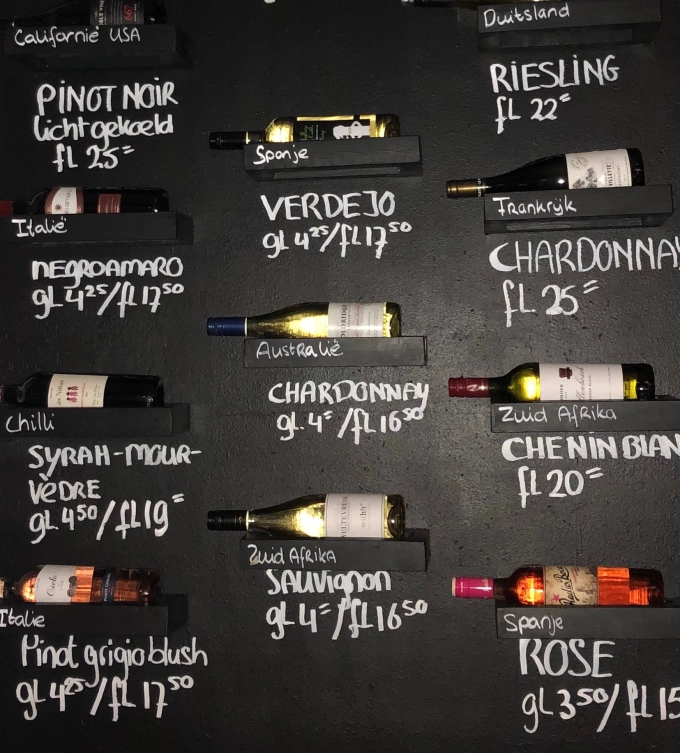 Californië USA
PINOT NOIR
licht gekoeld
fL 25=
Italië
NEGROAMARO
gL 4²⁵/fL 17⁵⁰
Chilli
SYRAH-MOUR-
VÈDRE
gL 4⁵⁰/fL 19=
Italie
Pinot grigio blush
gL 4²⁵/fL 17⁵⁰
Spanje
VERDEJO
gL 4²⁵/fL 17⁵⁰
Australië
CHARDONNAY
gL 4=/fL 16⁵⁰
Zuid Afrika
SAUVIGNON
gL 4=/fL 16⁵⁰
Duitsland
RIESLING
fL 22=
Frankrijk
CHARDONNAY
fL 25=
Zuid Afrika
CHENIN BLAN
fL 20=
Spanje
ROSE
gL 3⁵⁰/fL 15